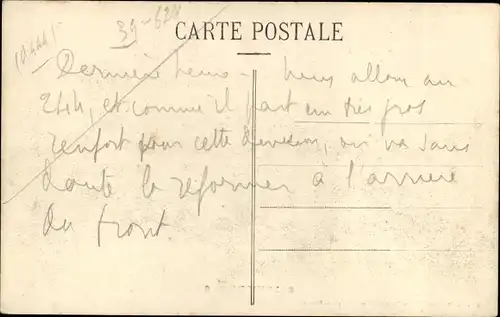 39-628
10444
CARTE POSTALE
Dernière heure - Nous allons au
244, et comme il part un très gros
renfort pour cette division, on va sans
doute la reformer à l'arrière
du front.